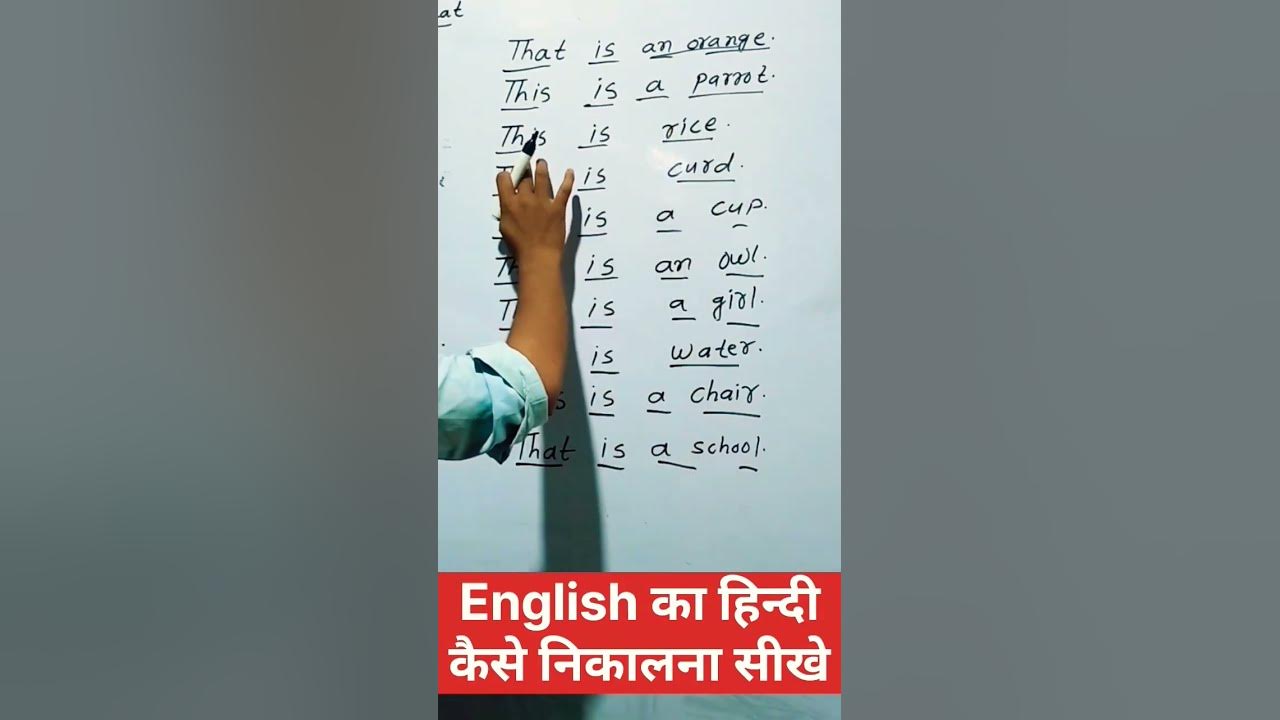 at
That is an orange.
This is a parrot.
This is rice.
is curd.
is a cup.
is an owl.
is a girl.
is water.
is a chair.
That is a school.
English का हिन्दी
कैसे निकालना सीखे